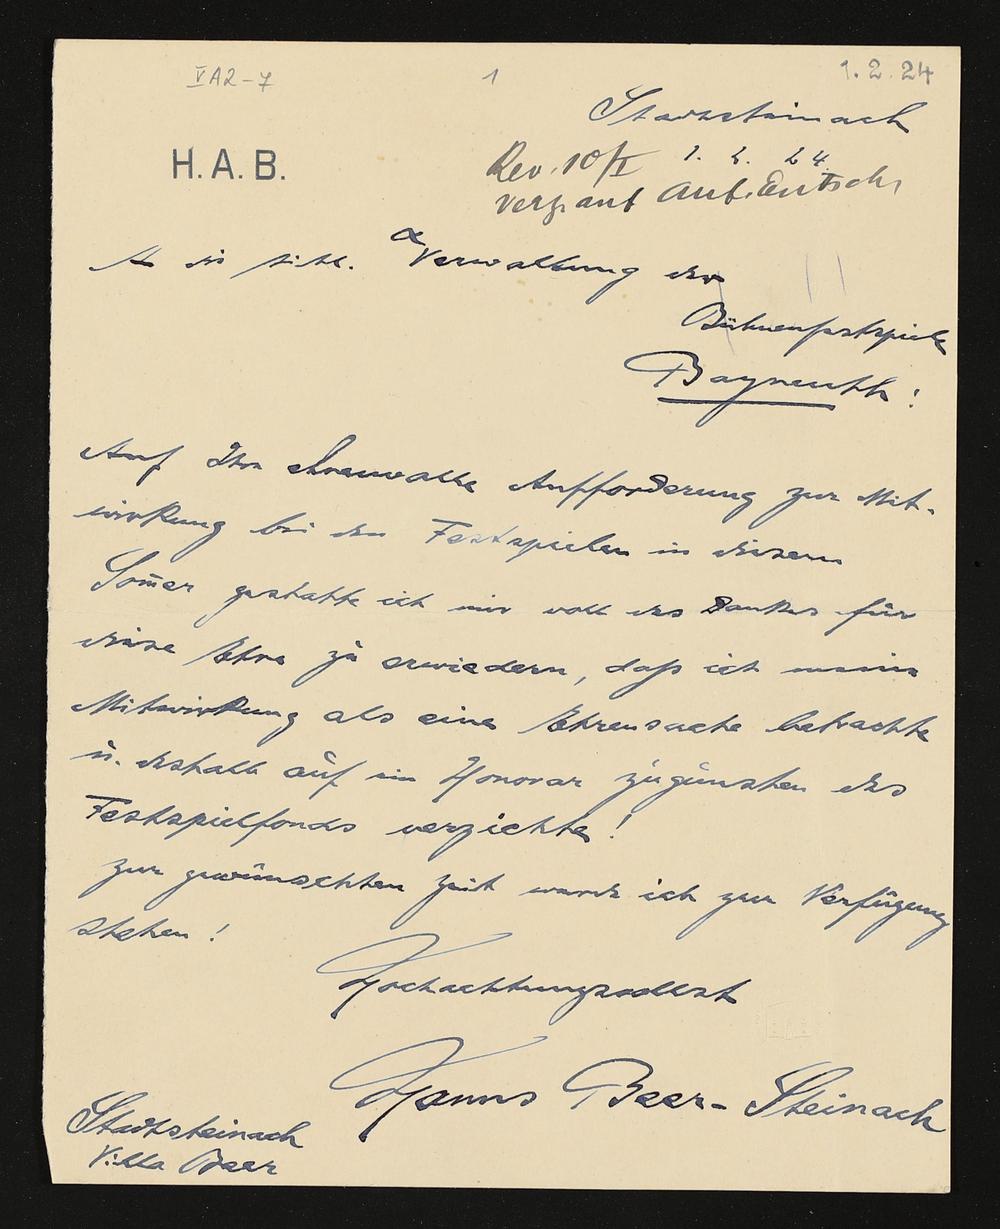 V A2-7
1
1.2.24
Stadtsteinach
H.A.B.
1. 2. 24.
Rev. 10/I
verz. auf Aufr. Entsch.
A die titl. Verwaltung der
Bühnenfestspiele
Bayreuth!
Auf Ihre ehrenvolle Aufforderung zur Mit-
wirkung bei den Festspielen in diesem
Som̅er gestatte ich mir voll des Dankes für
diese Ehre zu erwiedern, daß ich meine
Mitwirkung als eine Ehrensache betrachte
u. deshalb auf ein Honorar zugunsten des
Festspielfonds verzichte!
Zur gewünschten Zeit werde ich zur Verfügung
stehen!
Hochachtungsvollst
Hanns Beer-Steinach
Stadtsteinach
Villa Beer